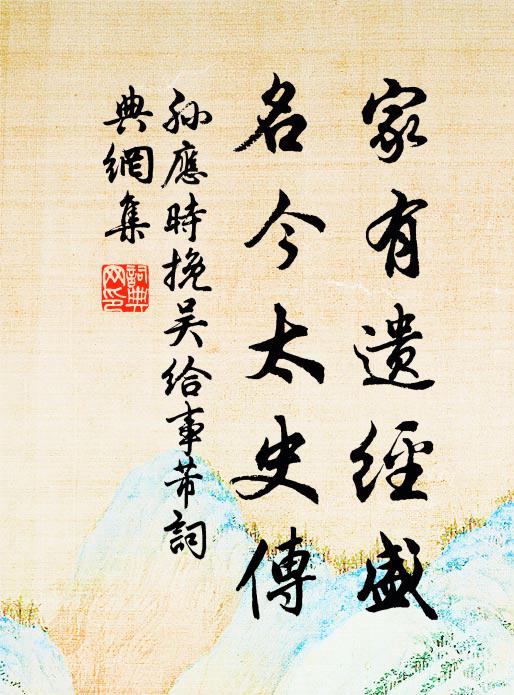 家有遺經盛
名今太史傳
孫應時挽吳給事芾詞
典網集
詞典網印